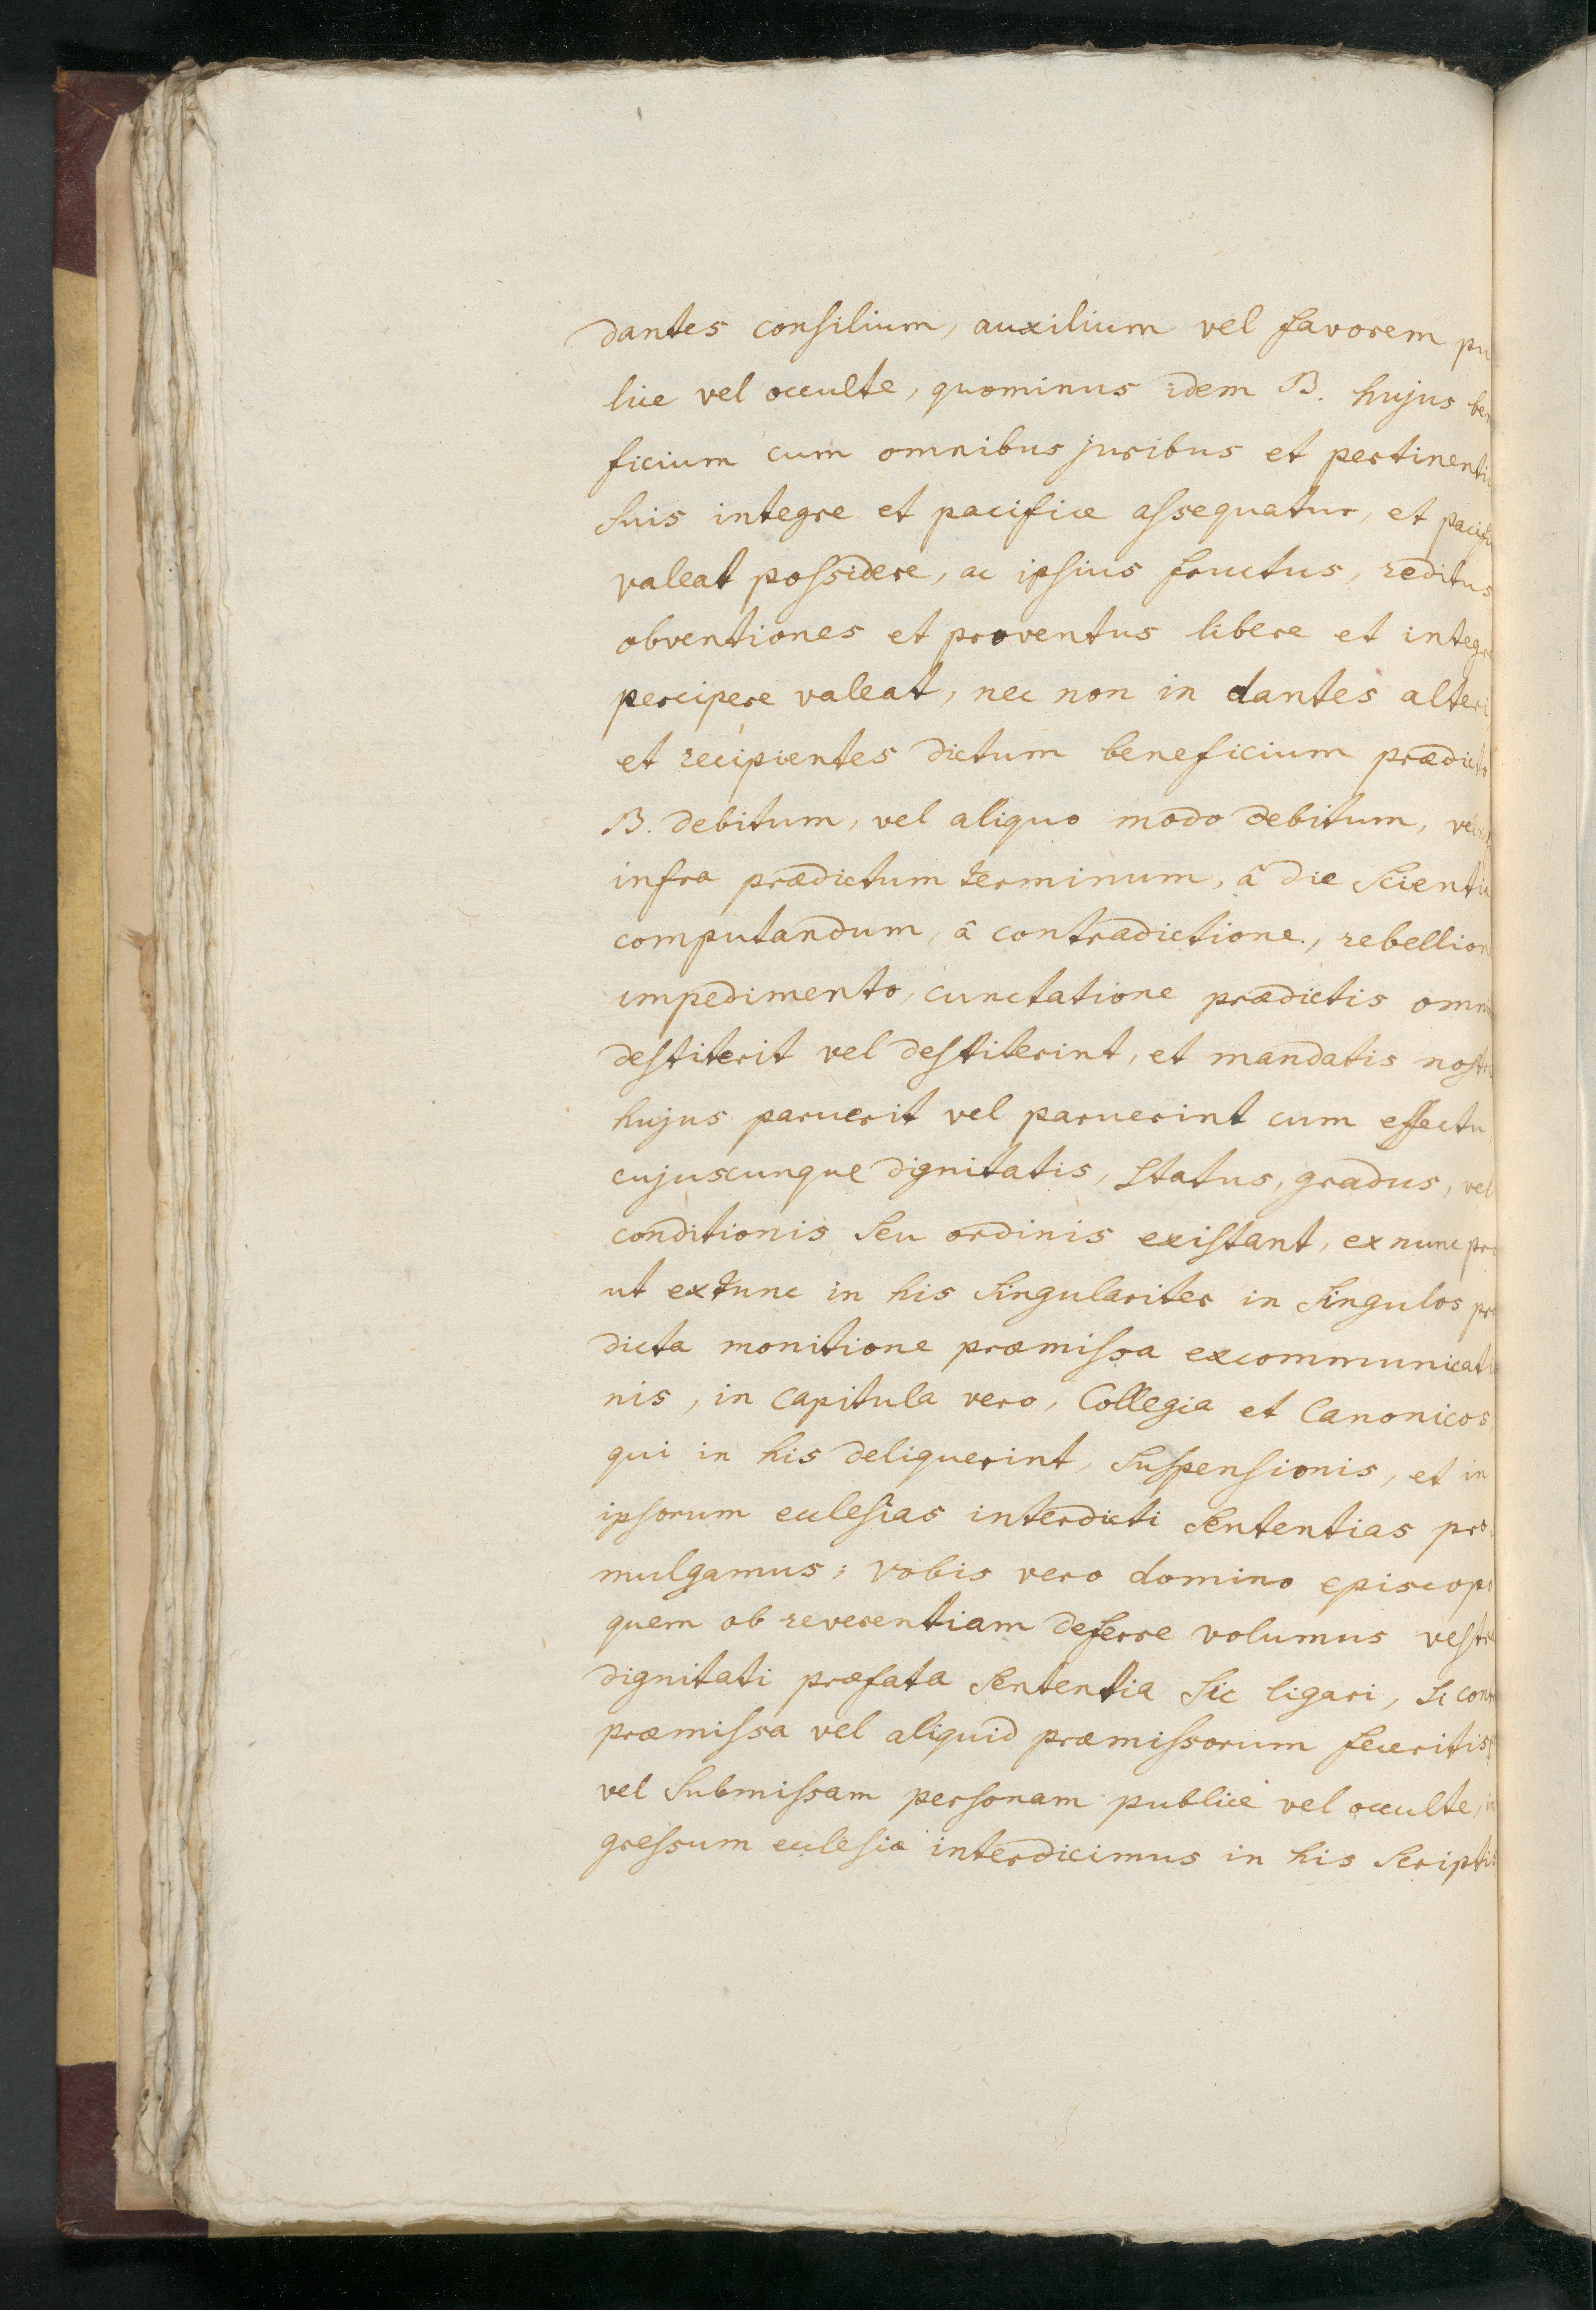 dantes consilium, auxilium vel favorem pu
lice vel occulte, quominus idem B. hujus be
ficium cum omnibus juribus et pertinenti
suis integre et pacifice assequatur, et pacifi
valeat possidere, ac ipsius fructus, reditus
obventiones et proventus libere et integr
percipere valeat, nec non in dantes alteri,
et recipientes dictum beneficium prædicto
B. debitum, vel aliquo modo debitum,
infra prædictum terminum, â die scienti
computandum, â contradictione, rebellion
impedimento, cunctatione prædictis omn
destiterit vel destiterint, et mandatis nostri
hujus paruerit vel paruerint cum effectu,
cujuscunque dignitatis, status, gradus, vel
conditionis seu ordinis existant, ex nunc pro
ut extunc in his singulariter in singulos præ
dicta monitione præmissa excommunicati
nis, in capitula vero, Collegia et Canonicos
qui in his deliquerint, suspensionis, et in
ipsorum ecclesias interdicti sententias pro
mulgamus; vobis vero domino episcopo
quem ob reverentiam deferre volumus vestræ
dignitati præfata sententia sic ligari, si cont
præmissa vel aliquid præmissorum feceritis
vel submissam personam publice vel occulte, in
gressum ecclesiæ interdicimus in his scriptis